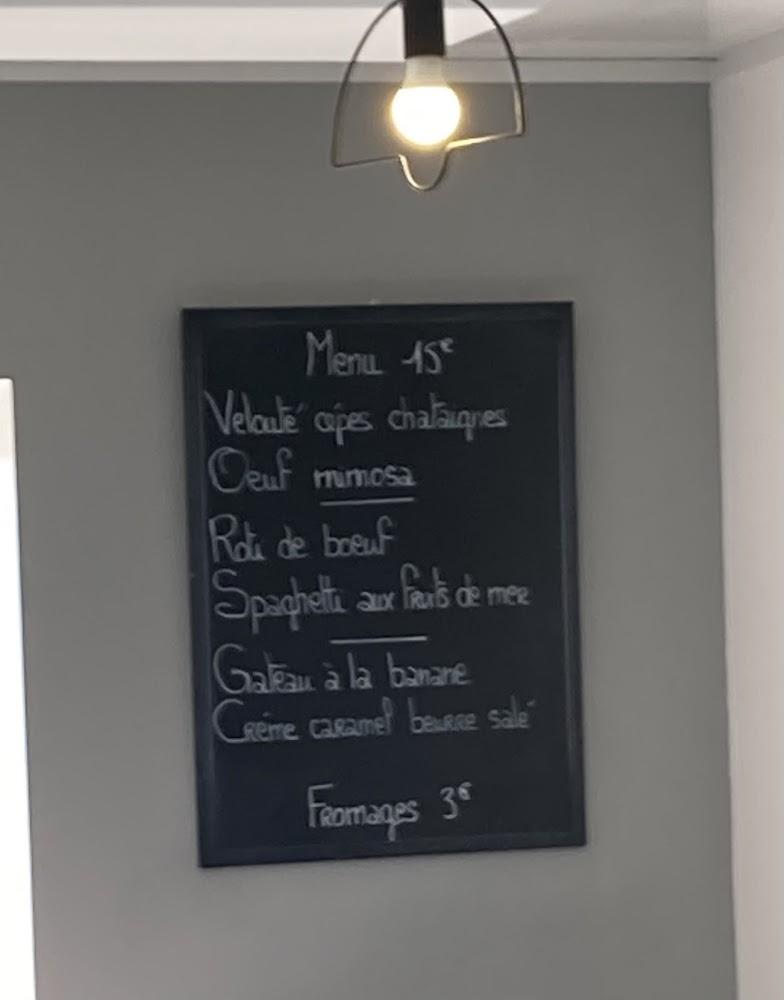 Menu 15€
Velouté cèpes chataignes
Oeuf mimosa
Roti de boeuf
Spaghetti aux fruits de mer
Gateau à la banane
Crème caramel beurre salé
Fromages 3€